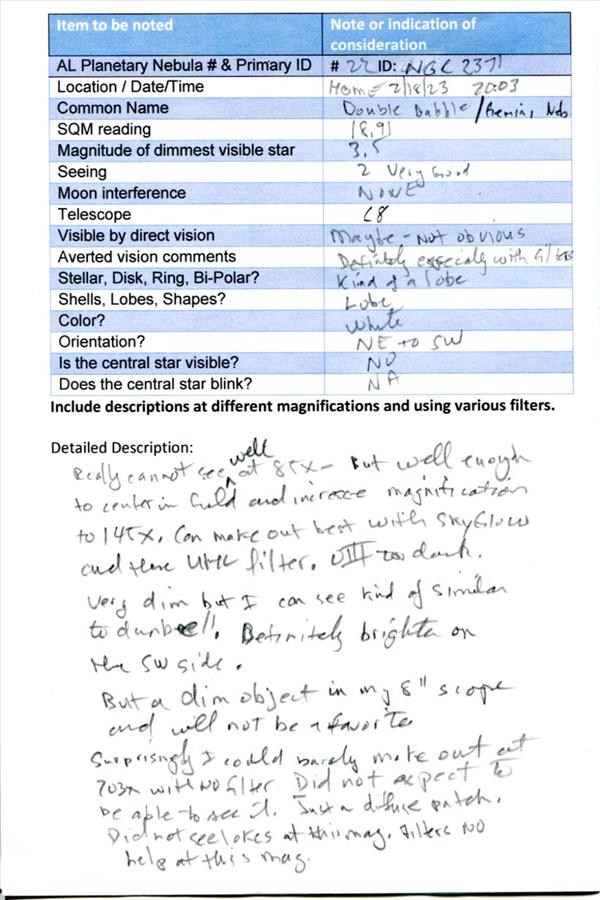 Item to be noted Note or indication of consideration
AL Planetary Nebula # & Primary ID # 22 ID: NGC 2371
Location / Date/Time Home 2/18/23 20:03
Common Name Double Bubble / Gemini Neb.
SQM reading 18.91
Magnitude of dimmest visible star 3.5
Seeing 2 Very Good
Moon interference NONE
Telescope C8
Visible by direct vision Maybe - Not obvious
Averted vision comments Definitely especially with filters
Stellar, Disk, Ring, Bi-Polar? Kind of a lobe
Shells, Lobes, Shapes? Lobe
Color? White
Orientation? NE to SW
Is the central star visible? NO
Does the central star blink? NA
Include descriptions at different magnifications and using various filters.
Detailed Description:
Really cannot see well at 85x - But well enough
to center in field and increase magnification
to 145x. Can make out best with SkyGlow
and then UHC filter. OIII too dark.
Very dim but I can see kind of similar
to dumbell. Definitely brighter on
the SW side.
But a dim object in my 8" scope
and will not be a favorite
Surprisingly I could barely make out at
203x with NO filter. Did not expect to
be able to see it. Just a diffuse patch.
Did not see lobes at this mag. Filters NO
help at this mag.